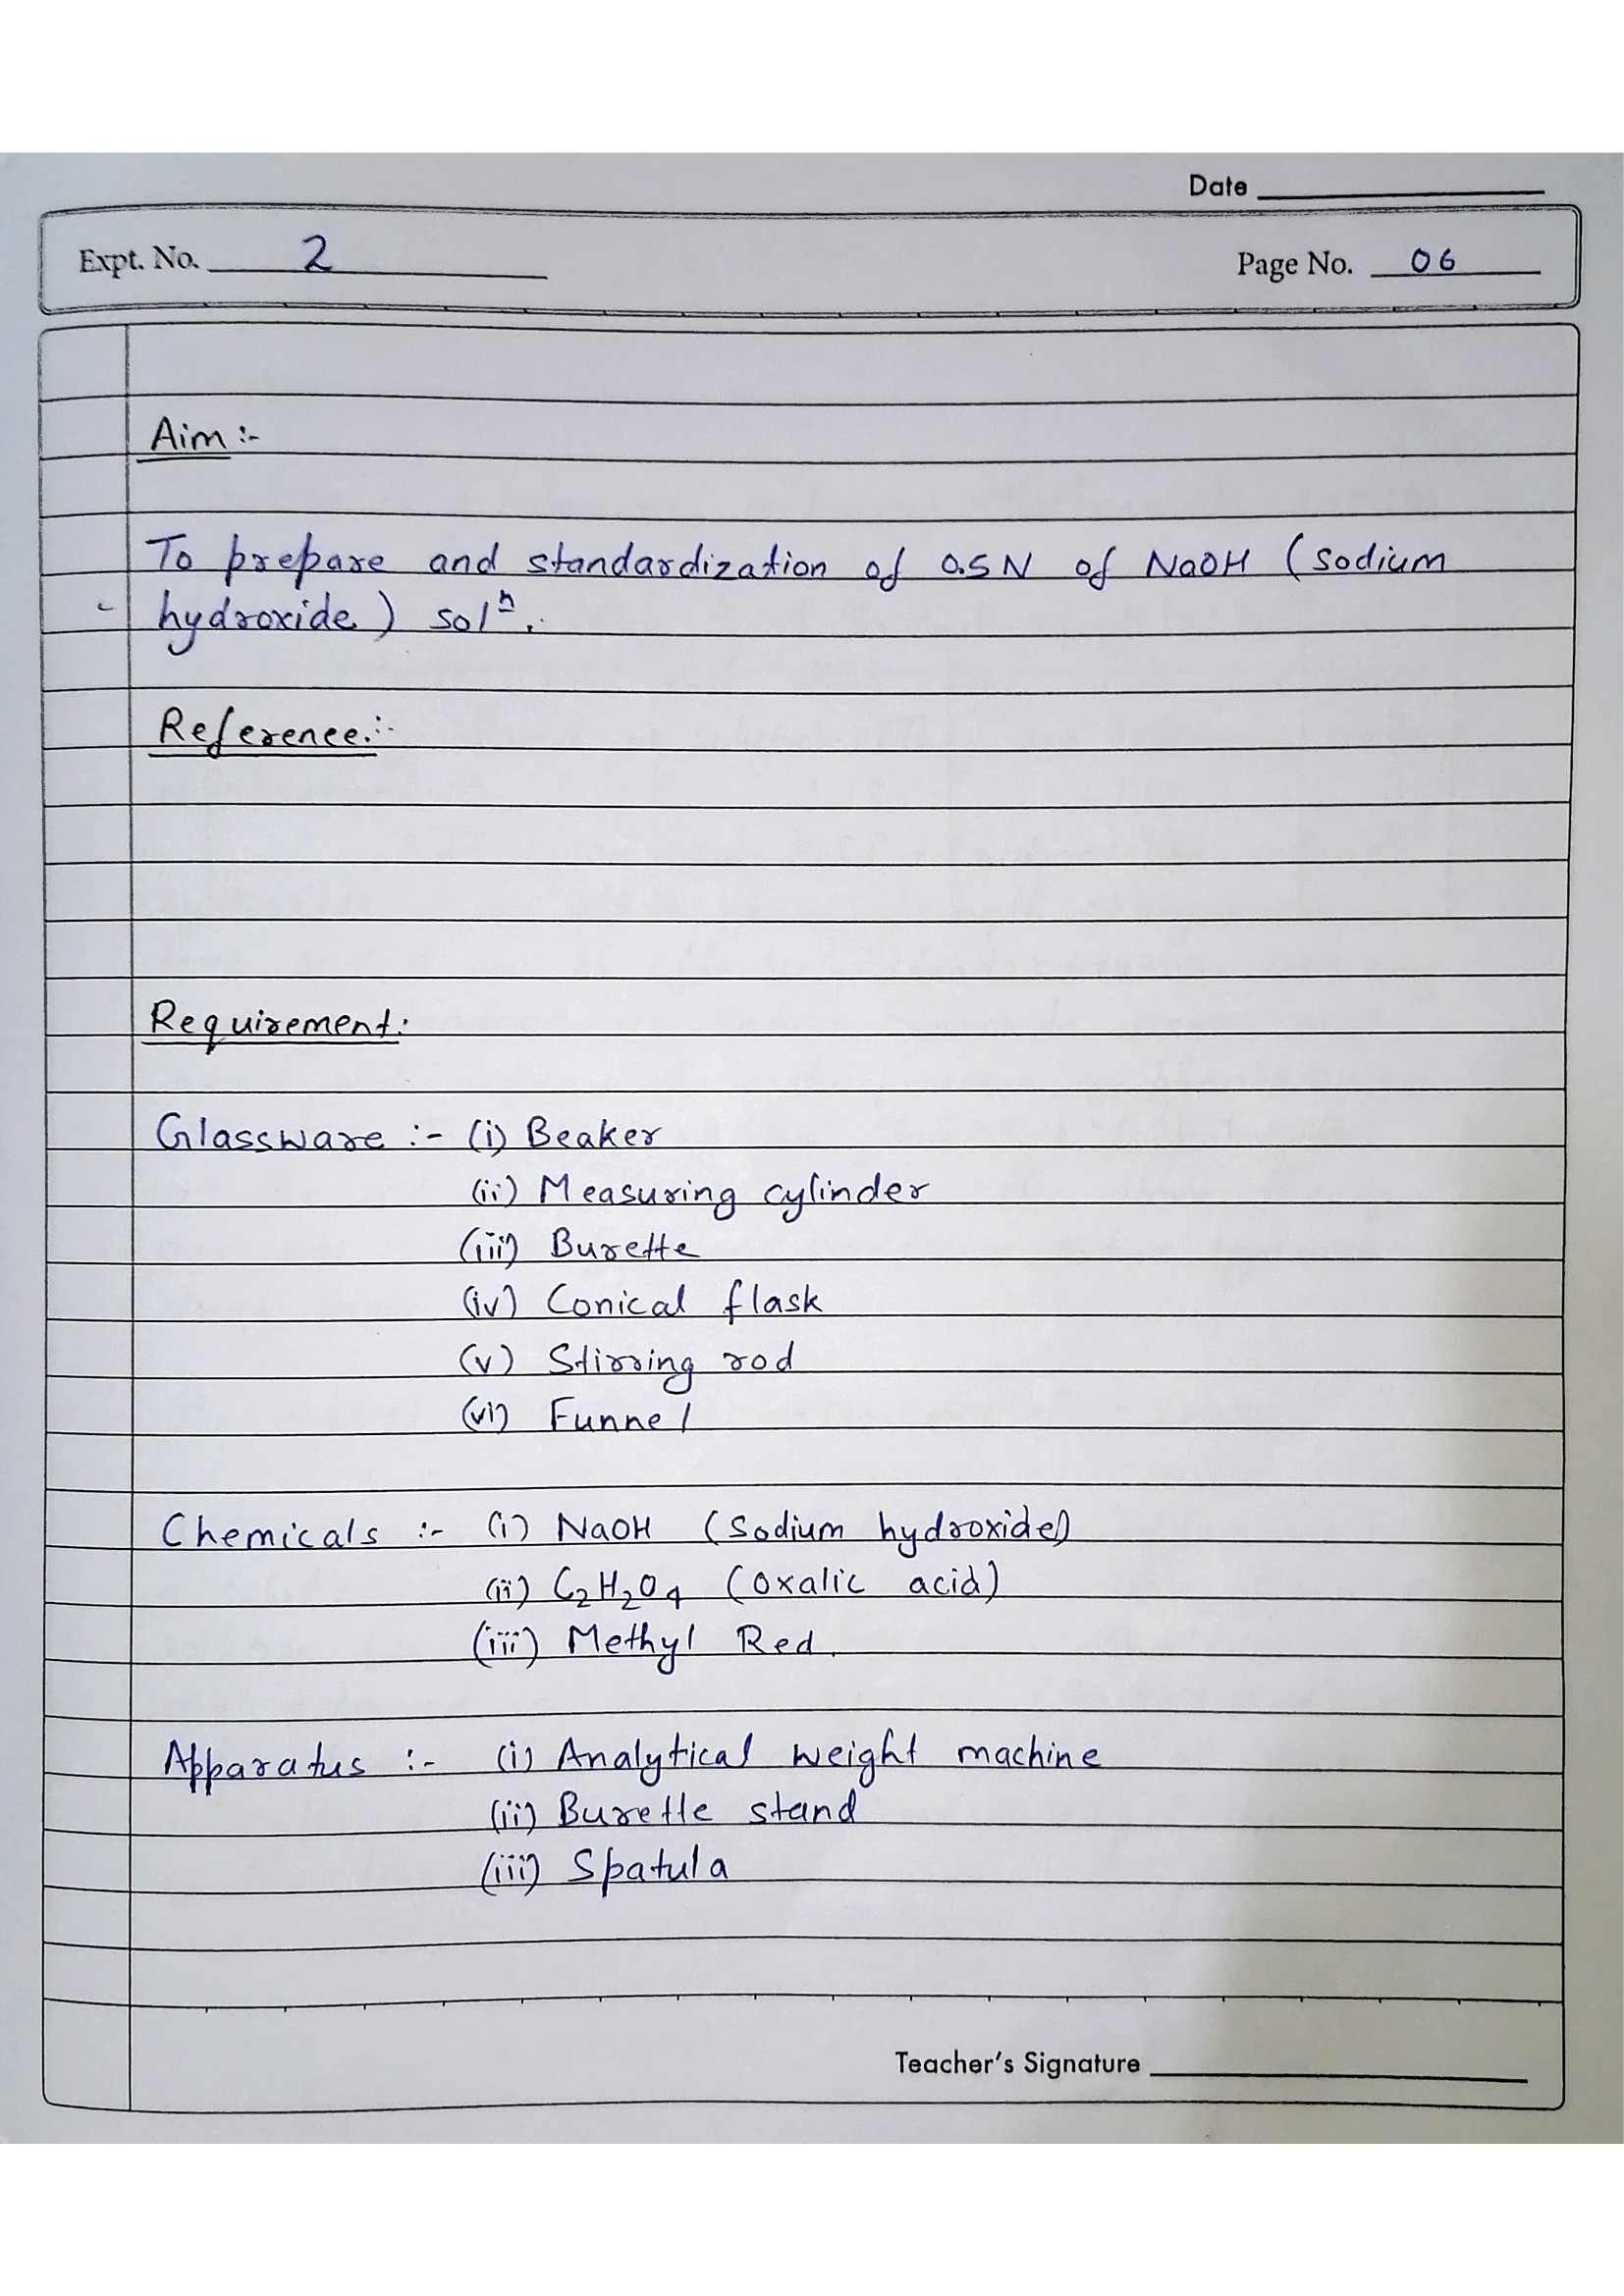 Date
Expt. No. 2
Page No. 06
Aim :-
To prepare and standardization of 0.5 N of NaOH (sodium
hydroxide) solⁿ.
Reference:-
Requirement:
Glassware :- (i) Beaker
(ii) Measuring cylinder
(iii) Burette
(iv) Conical flask
(v) Stirring rod
(vi) Funnel
Chemicals :- (i) NaOH (Sodium hydroxide)
(ii) C₂H₂O₄ (Oxalic acid)
(iii) Methyl Red.
Apparatus :- (i) Analytical weight machine
(ii) Burette stand
(iii) Spatula
Teacher's Signature